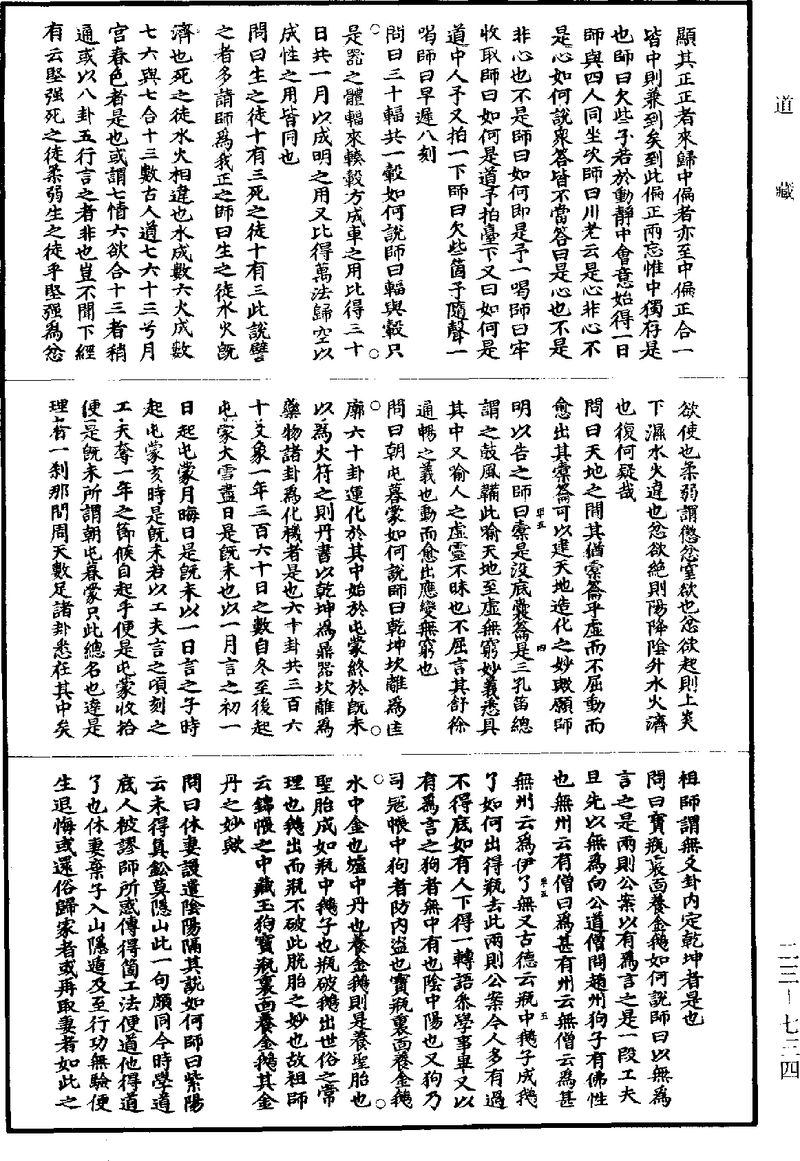 道藏
顯其正正者來歸中偏者亦至中偏正合一
皆中則兼到矣到此偏正兩忘惟中獨存是
也師曰欠些子若於動靜中會意始得一日
師與四人同坐次師曰川老云是心非心不
是心如何說衆答皆不當答曰是心也不是
非心也不是師曰如何即是予一喝師曰牢
收取師曰如何是道予拍臺下又曰如何是
道中人予又拍一下師曰欠些箇子隨聲一
喝師曰早遲八刻
問曰三十輻共一轂如何說師曰輻與轂只
是器之體輻來輳轂方成車之用比得三十
日共一月以成明之用又比得萬法歸空以
成性之用皆同也
問曰生之徒十有三死之徒十有三此說譬
之者多請師爲我正之師曰生之徒水火旣
濟也死之徒水火相違也水成數六火成數
七六與七合十三數古人道七六十三兮月
宮春色者是也或謂七情六欲合十三者稍
通或以八卦五行言之者非也豈不聞下經
有云堅强死之徒柔弱生之徒乎堅强爲忿
欲使也柔弱謂懲忿窒欲也忿欲起則上炎
下濕水火違也忿欲絕則陽降陰升水火濟
也復何疑哉
問曰天地之間其猶橐籥乎虛而不屈動而
愈出其橐籥可以達天地造化之妙歟願師
明以告之師曰橐是沒底囊籥是三孔笛總
謂之鼓風鞴此喻天地至虛無窮妙義悉具
其中又喻人之虛靈不昧也不屈言其舒徐
通暢之義也動而愈出應變無窮也
問曰朝屯暮蒙如何說師曰乾坤坎離爲匡
廓六十卦運化於其中始於屯蒙終於旣未
以爲火符之則丹書以乾坤爲鼎器坎離爲
藥物諸卦爲化機者是也六十卦共三百六
十爻象一年三百六十日之數自冬至後起
屯蒙大雪盡日是旣未也以一月言之初一
日起屯蒙月晦日是旣未以一日言之子時
起屯蒙亥時是旣未若以工夫言之頃刻之
工夫奪一年之節候自起手便是屯蒙收拾
便是旣未所謂朝屯暮蒙只此總名也達是
理者一刹那間周天數足諸卦悉在其中矣
祖師謂無爻卦內定乾坤者是也
問曰寶瓶裏面養金鵝如何說師曰以無爲
言之是兩則公案以有爲言之是一段工夫
且先以無爲向公道僧問趙州狗子有佛性
也無州云有僧曰爲甚有州云無僧云爲甚
無州云爲伊了無又古德云瓶中鵝子成鵝
了如何出得瓶去此兩則公案今人多有過
不得底如有人下得一轉語叅學事畢又以
有爲言之狗者無中有也陰中陽也又狗乃
司寇帳中狗者防內盜也寶瓶裏面養金鵝
水中金也爐中丹也養金鵝則是養聖胎也
聖胎成如瓶中鵝子也瓶破鵝出世俗之常
理也鵝出而瓶不破此脫胎之妙也故祖師
云錦帳之中藏玉狗寶瓶裏面養金鵝其金
丹之妙歟
問曰休妻謾遣陰陽隔其說如何師曰紫陽
云未得眞鉛莫隱山此一句頗同今時學道
底人被謬師所惑傳得箇工法便道他得道
了也休妻棄子入山隱遁及至行功無驗便
生退悔或還俗歸家者或再取妻者如此之
二三—七三四